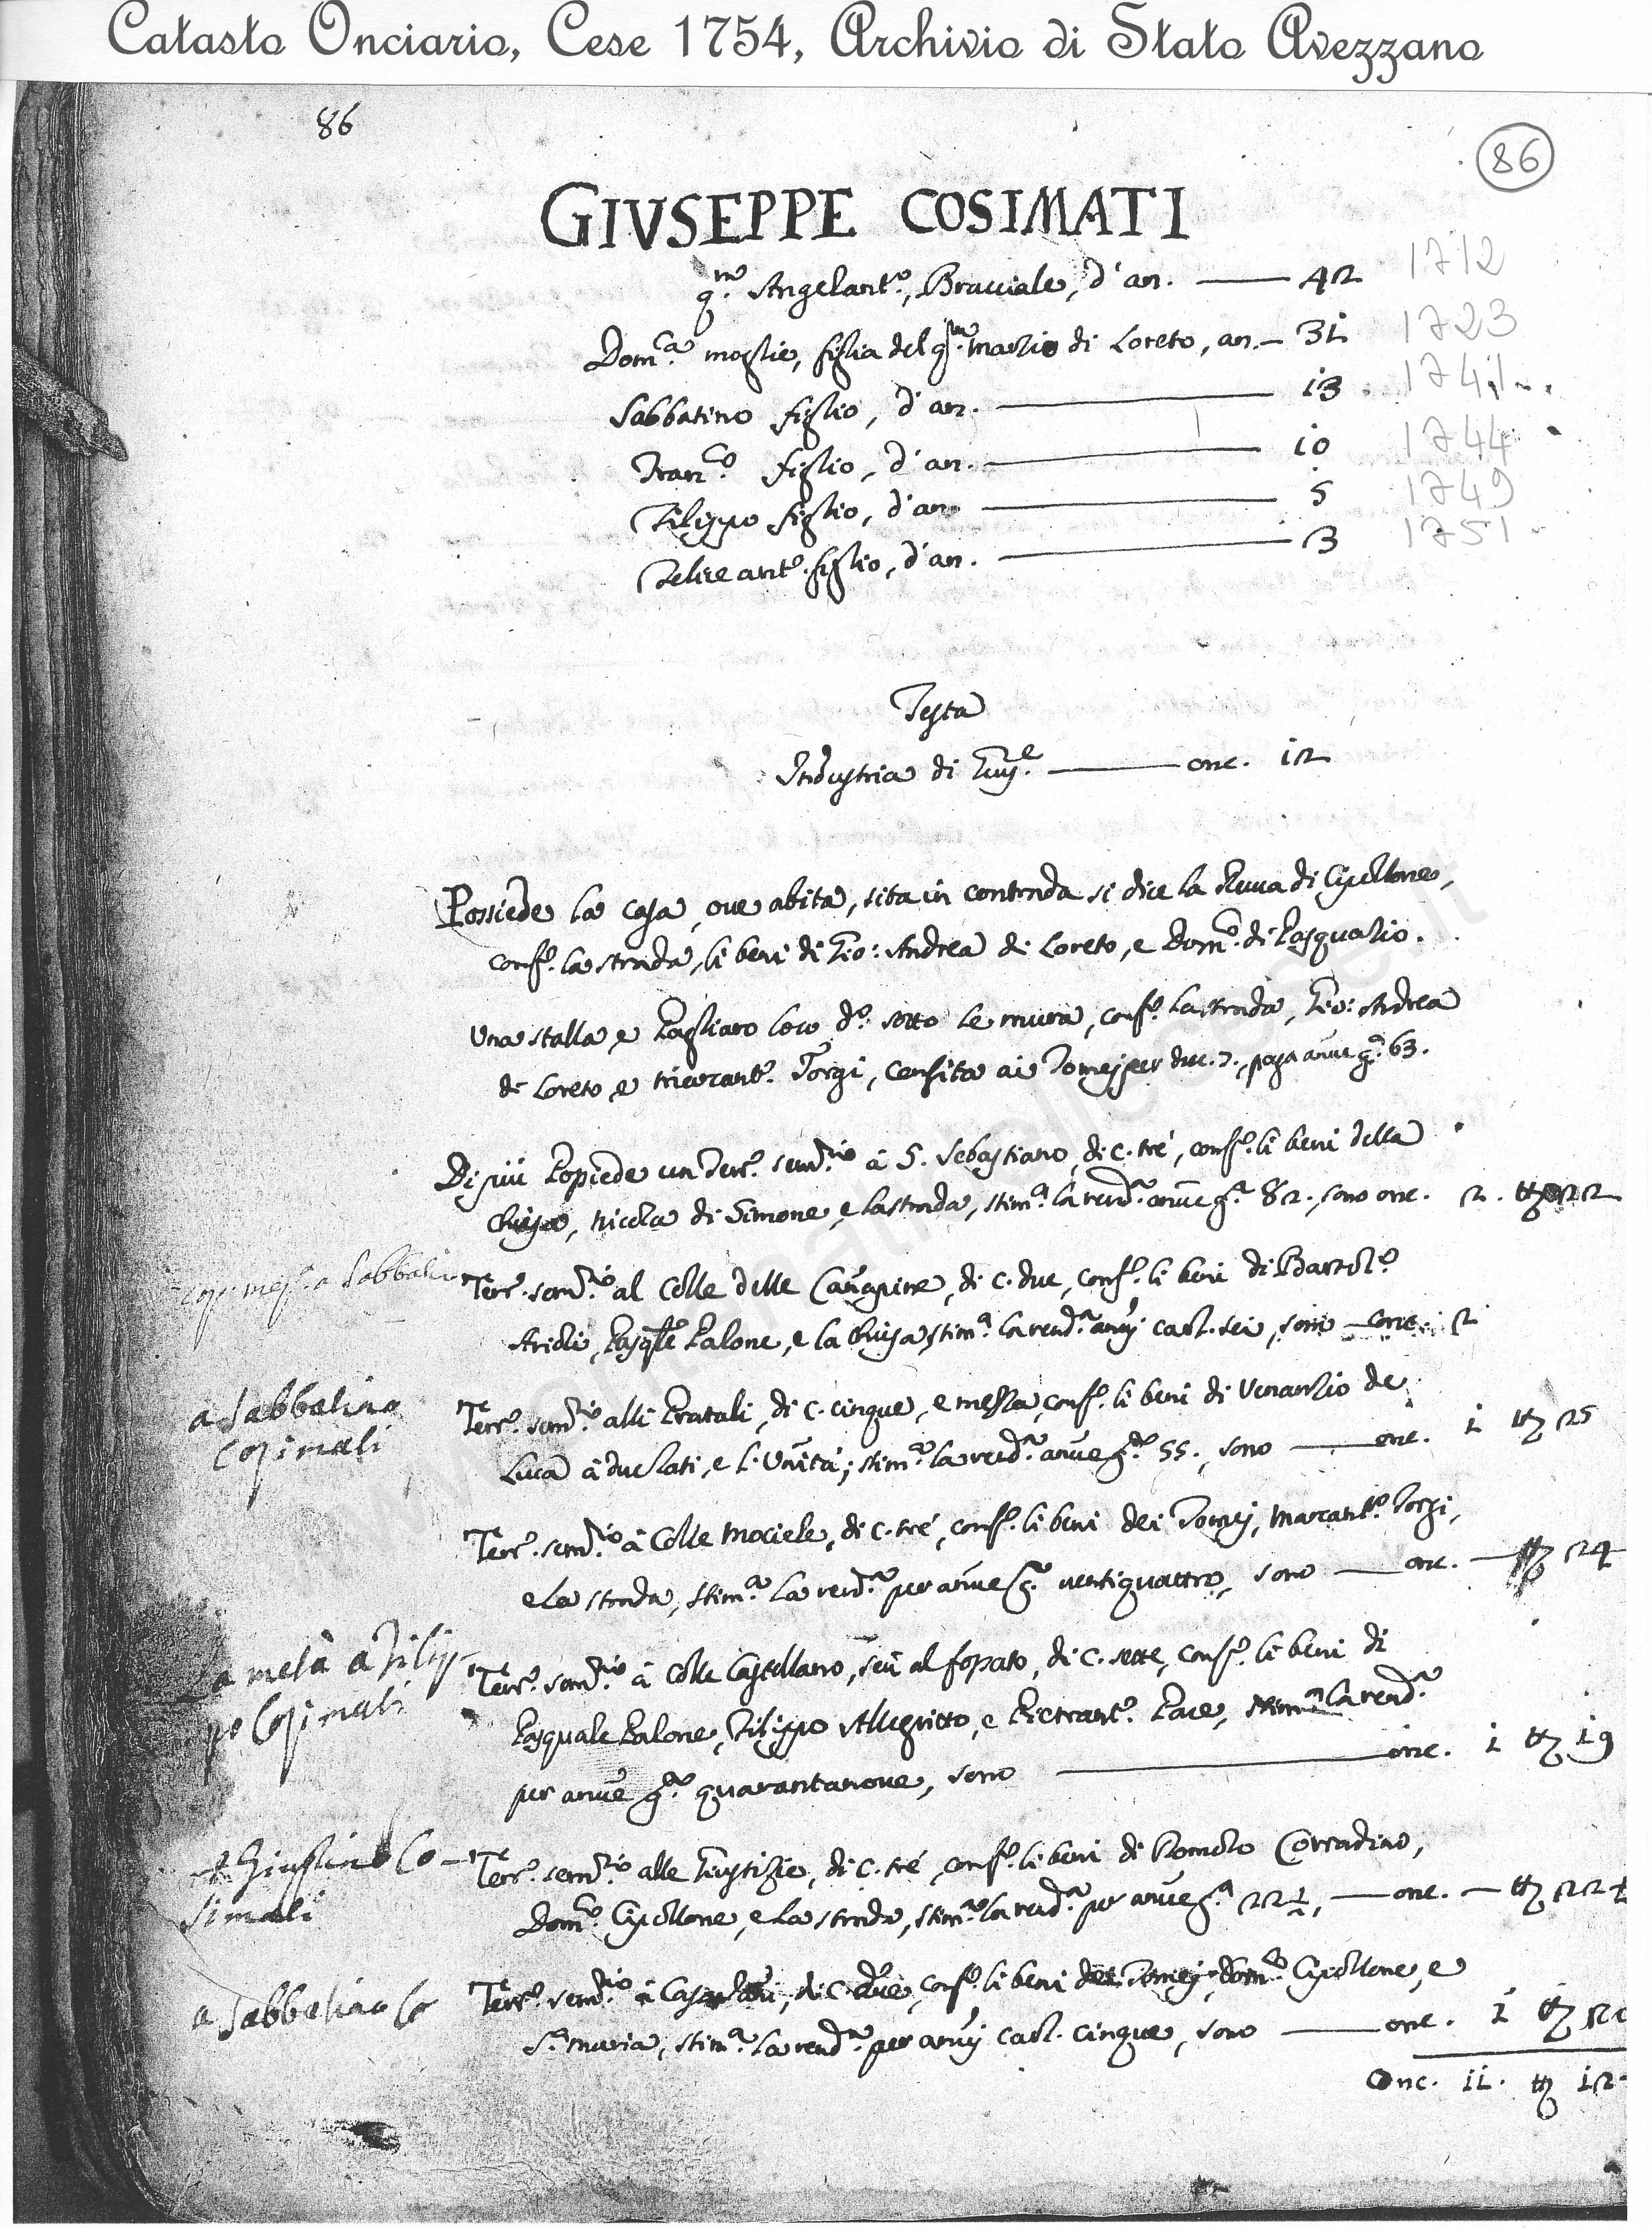 Catasto Onciario, Cese 1754, Archivio di Stato Avezzano
86
86
GIVSEPPE COSIMATI
q.m Angelant.o, Bracciale, d'an. — 42 1712
Dom.ca moglie, figlia del q.m Marzio di Loreto, an. — 31 1723
Sabbatino figlio, d'an. — 13 1741
Fran.co figlio, d'an. — 10 1744
Filippo figlio, d'an. — 5 1749
Felice ant.o figlio, d'an. — 3 1751
Testa
Industria di Giuse.e — onc. 12
Possiede la casa, ove abita, sita in contrada si dice la Ruua di Cipollone,
conf.o la strada, li beni di Gio: Andrea di Loreto, e Dom.o di Pasqualio.
Una stalla, e Pagliaro loco d.o sotto le mura, conf.o la strada, Gio: Andrea
di Loreto, e Torgi, censita ai Tomei per duc. 7., paga annue g.a 63.
Di più Possiede un Terr.o sem.rio à S. Sebastiano, di c. tré, conf.o li beni della
Chiesa, Nicola di Simone, e la strada, stim.a la rend.a annue g.a 82., sono onc. 2. 22
a Sabbati
Terr.o sem.rio al Colle delle Cannapine, di c. due, conf.o li beni di Bartol.o
Aridi, Pasq.le Palone, e la Chiesa, stim.a la rend.a annui carl. sei, sono — onc. 2
a Sabbatino
Cosimati
Terr.o sem.rio alli Pratali, di c. cinque, e mezza, conf.o li beni di Venanzio de
Luca à due lati, e l'Unità; stim.a la rend.a annue g.a 55., sono — onc. 1 25
Terr.o sem.rio à Colle Mociele, di c. tré, conf.o li beni dei Tomei, Marcant.o Torgi,
e la strada, stim.a la rend.a per annue g.a ventiquattro, sono — onc. — 24
La metà a Filip
po Cosimati
Terr.o sem.rio à Colle Castellano, seu al fossato, di c. sette, conf.o li beni di
Pasquale Palone, Filippo Allegritto, e Pietrant.o Pace, stim.a la rend.a
per annue g.a quarantanove, sono — onc. 1 19
A Giustino Co
simati
Terr.o sem.rio alle Giustizie, di c. tré, conf.o li beni di Romolo Corradino,
Dom.o Cipollone, e la strada, stim.a la rend.a per annue g.a 22½, — onc. — 22½
a Sabbatino Co
Terr.o sem.rio à di c. due, conf.o li beni dei Tomei, Dom.o Cipollone, e
S.a Maria, stim.a la rend.a per annui carl. cinque, sono — onc. 1 20
Onc. 11. 12